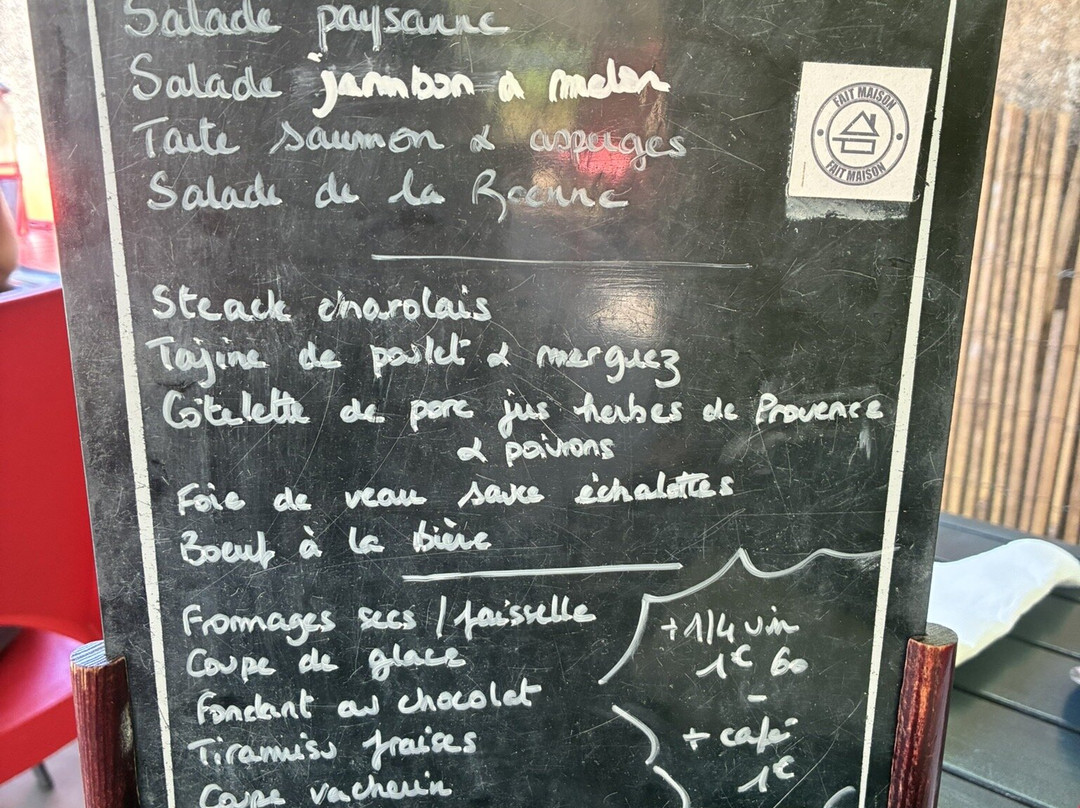 Salade paysanne
Salade jambon & melon
FAIT MAISON
FAIT MAISON
Tarte saumon & asperges
Salade de la Roanne
Steack charolais
Tajine de poulet & merguez
Côtelette de porc jus herbes de Provence
& poivrons
Foie de veau sauce échalottes
Boeuf à la bière
Fromages secs / faisselle
+ 1/4 vin
Coupe de glace
1€ 60
Fondant au chocolat
-
Tiramisu fraises
+ café
Coupe vacherin
1€